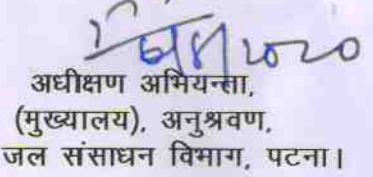 6/8/2020
अधीक्षण अभियन्ता,
(मुख्यालय), अनुश्रवण,
जल संसाधन विभाग, पटना।